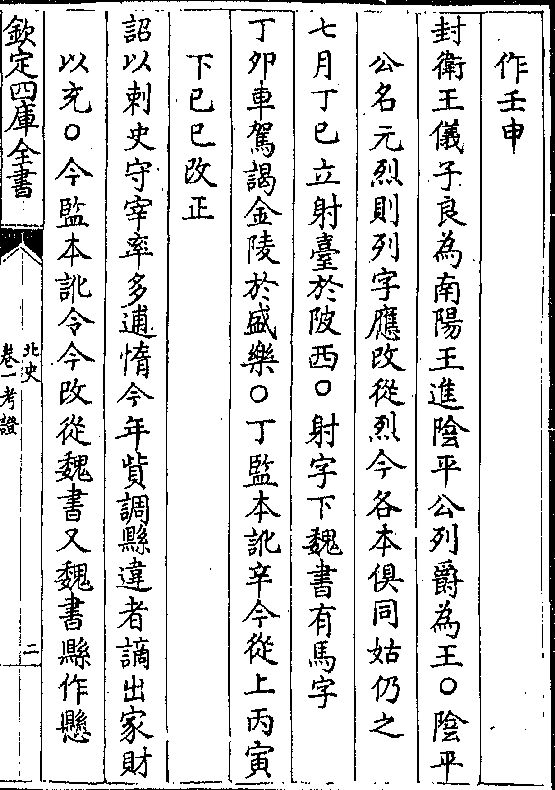 作壬申
封衛王儀子良為南陽王進陰平公列爵為王○陰平
公名元烈則列字應改從烈今各本俱同姑仍之
七月丁巳立射臺於陂西○射字下魏書有馬字
丁卯車駕謁金陵於盛樂○丁監本訛辛今從上丙寅
下已巳改正
詔以刺史守宰率多逋惰今年貲調縣違者謫出家財
以充○今監本訛令今改從魏書又魏書縣作懸
欽定四庫全書
北史
卷一考證
二